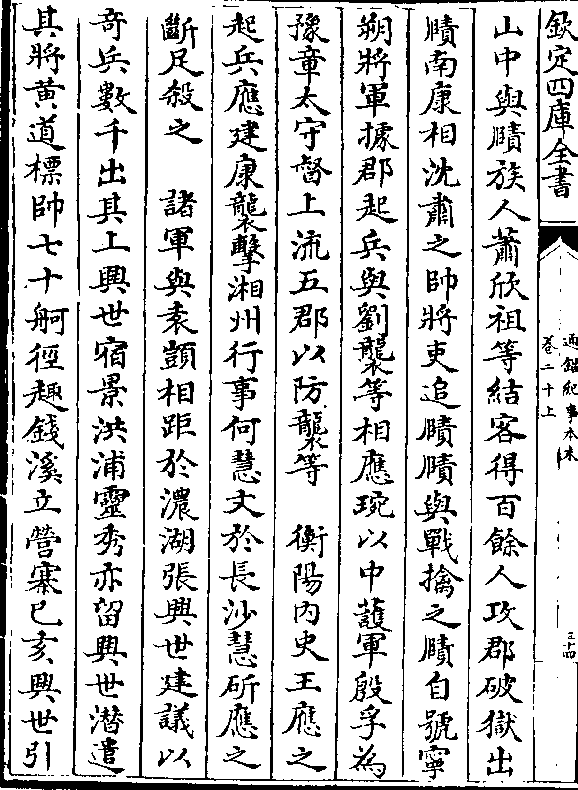 欽定四庫全書
通鑑紀事本末
卷二十上
三十四
山中與賾族人蕭欣祖等結客得百餘人攻郡破獄出
賾南康相沈肅之帥將吏追賾賾與戰擒之賾自號寧
朔將軍據郡起兵與劉襲等相應琬以中護軍殷孚為
豫章太守督上流五郡以防襲等 衡陽內史王應之
起兵應建康襲擊湘州行事何慧文於長沙慧斫應之
斷足殺之 諸軍與袁顗相距於濃湖張興世建議以
奇兵數千出其上興世宿景洪浦靈秀亦留興世潛遣
其將黃道標帥七十舸徑趣錢溪立營寨己亥興世引